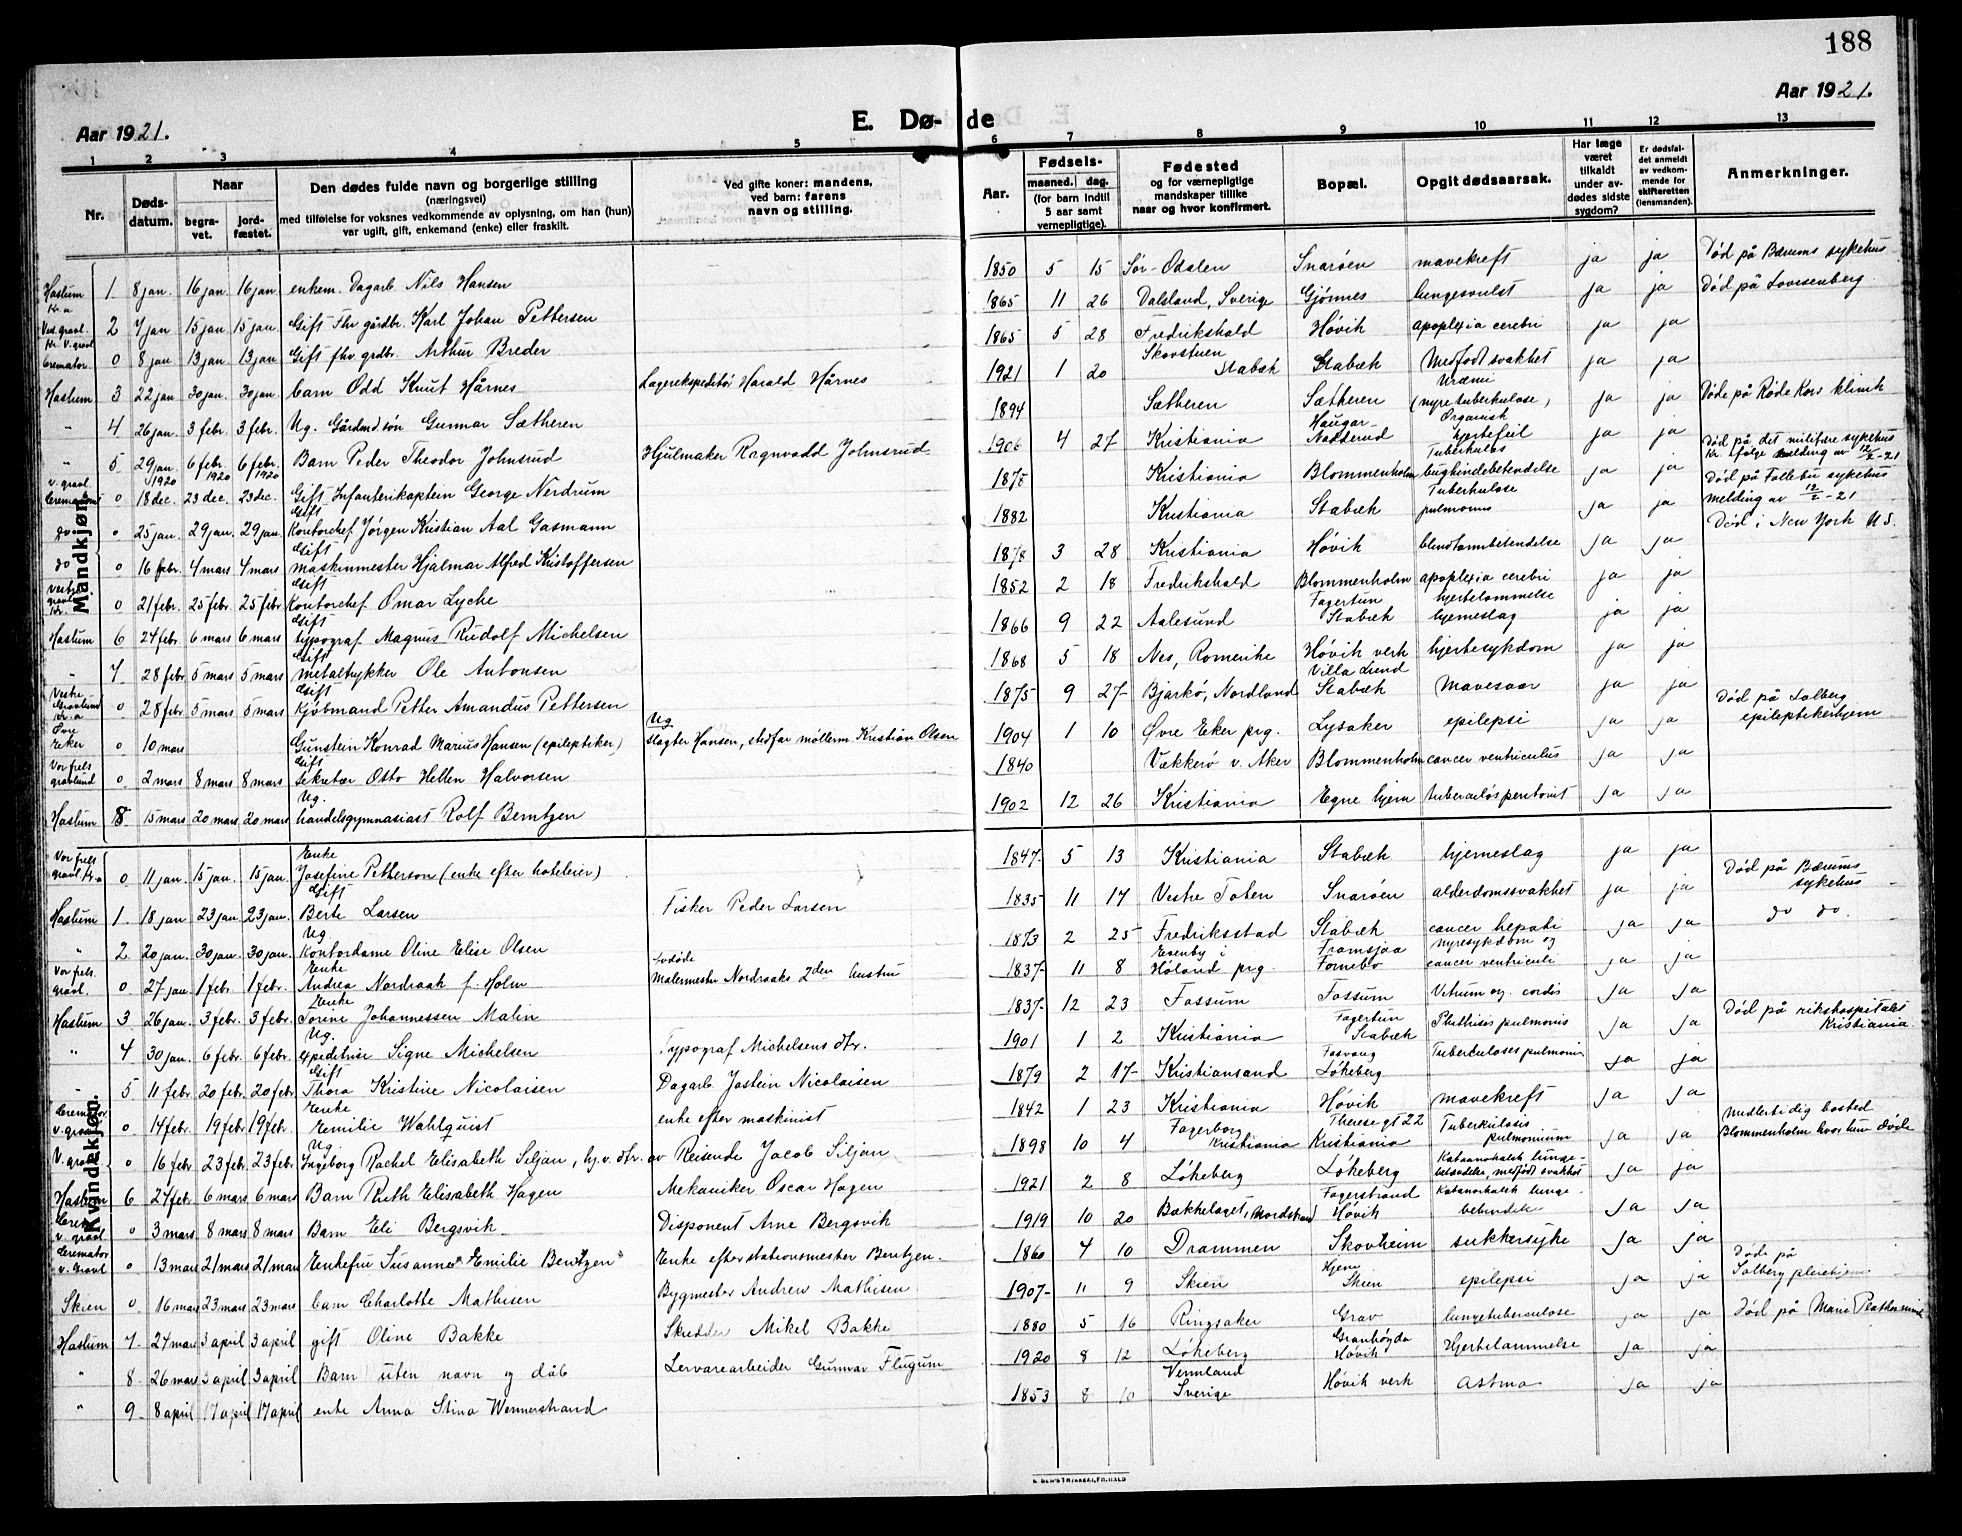 188
Aar 1921.
Aar 1921.
E. Dø- de
1 2 3 4 5 6 7 8 9 10 11 12 13
Nr.
Døds-
datum.
Naar
begra-
vet.
jord-
fæstet.
Den dødes fulde navn og borgerlige stilling
(næringsvei)
med tilføielse for voksnes vedkommende av oplysning, om han (hun)
var ugift, gift, enkemand (enke) eller fraskilt.
Ved gifte koner: mandens,
ved barn: farens
navn og stilling.
Aar.
Fødsels-
maaned. dag.
(for barn indtil
5 aar samt
vernepligtige).
Fødested
og for værnepligtige
mandskaper tillike
naar og hvor konfirmert.
Bopæl.
Opgit dødsaarsak.
Har læge
været
tilkaldt
under av-
dødes sidste
sygdom?
Er dødsfal-
det anmeldt
av vedkom-
mende for
skifteretten
(lensmanden).
Anmerkninger.
Mandkjøn.
Haslum 1 8 jan 16 jan 16 jan enkem. Dagarb. Nils Hansen 1850 5 15 Sør-Odalen Snarøen mavekreft ja ja Død på Bærums sykehus
Kr.a
Vest. gravl. 2 7 jan 15 jan 15 jan Gift Fhv gårdbr. Karl Johan Pettersen 1865 11 26 Dalsland, Sverige Gjønnes lungesvulst ja ja Død på Lovisenberg
Kr. V. gravl
Cremator. 0 8 jan 13 jan 13 jan Gift fhv grdbr. Arthur Breder 1865 5 28 Fredrikshald Høvik apoplexia cerebri ja ja
Haslum 3 22 jan 30 jan. 30 jan barn Odd Knut Hårnes Lagerekspeditør Harald Hårnes 1921 1 20 Skovstuen Stabæk Stabæk Medfødt svakhet ja ja
" 4 26 jan 3 febr 3 febr. Ug. Gårdmdsøn Gunnar Sætheren 1894 Sætheren Sætheren Uræmi (nyretuberkulose) ja ja Døde på Røde Kors klinik
" 5 29 jan 6 febr. 6 febr. Barn Peder Theodor Johnsrud Hjulmaker Ragnvadd Johnsrud 1906 4 27 Kristiania Haugar- Nadderud Organisk hjertefeil ja ja Død på det militære sykehus
Kr. ifølge melding av 12/2-21
v. gravl
Crematoriet 0 18 dec. 1920 23 dec. 1920 23 dec. 1920 Gift Infanterikaptein George Nerdrum 1878 Kristiania Blommenholm Tuberkuløs bughindebetendelse ja ja Død på Follebu sykehus
melding av 12/2-21
do 0 25 jan. 29 jan. 29 jan. Gift Kontorchef Jørgen Kristian Aal Gasmann 1882 Kristiania Stabæk Tuberkulose pulmonus ja ja
do 0 16 febr. 4 mars 4 mars Gift maskinmester Hjalmar Alfred Kristoffersen 1878 3 28 Kristiania Høvik blindtarmbetendelse ja ja Død i New York U.S.
Vestre gravl Kr. 0 21 febr. 25 febr 25 febr Gift Kontorchef Omar Lyche 1852 2 18 Fredrikshald Blommenholm apoplexia cerebri ja ja
Haslum 6 24 febr 6 mars 6 mars Gift typograf Magnus Rudolf Michelsen 1866 9 22 Aalesund Fagertun Stabæk hjertelammelse hjerneslag ja ja
" 7 28 febr 5 mars 5 mars Gift metaltrykker Ole Antonsen 1868 5 18 Nes, Romerike Høvik verk hjertesykdom ja ja
Vestre Gravlund Kr.a 0 28 febr 5 mars 5 mars Gift Kjøbmand Petter Amandus Pettersen 1875 9 27 Bjarkø, Nordland Villa Lund Stabæk Mavesaar ja ja
Øvre Eker 0 10 mars Gunstein Konrad Marius Hansen (epileptiker) Ug slagter Hansen, stedfar møllerm. Kristian Olsen 1904 1 10 Øvre Eker prg. Lysaker epilepsi ja ja Død på Solberg
epileptikerhjem
Vor frels gravlund 0 2 mars 8 mars 8 mars Gift Sekretær Otto Hellen Halvorsen 1840 Vækkerø v. Aker Blommenholm cancer ventriculus ja ja
Haslum 8 15 mars 20 mars 20 mars Ug. handelsgymnasiast Rolf Berntzen 1902 12 26 Kristiania Egne hjem tuberculøs peritonit ja ja
Kvindekjøn.
Vor frels gravl. Kr.a 0 11 jan. 15 jan. 15 jan. Enke Josefine Petterson (enke efter hoteleier) 1847 5 13 Kristiania Stabæk hjerneslag ja ja
Haslum 1 18 jan 23 jan 23 jan. Gift Berte Larsen Fisker Peder Larsen 1835 11 17 Vestre Toten Snarøen alderdomssvakhet ja ja Død på Bærums
sykehus
" 2 20 jan. 30 jan. 30 jan. Ug Kontordame Oline Elise Olsen 1873 2 25 Fredriksstad Stabæk cancer hepati ja ja do do.
Vor frels. gravl. 0 27 jan 1 febr 1 febr. Enke Andrea Nordraak f. Holm avdøde Malermester Nordraaks 2den hustru 1837 11 8 Høland prg. Fornebo nyresykdom og cancer ventriculi ja ja
Haslum 3 26 jan. 3 febr. 3 febr. Enke Sorine Johannessen Malin 1837 12 23 Fossum Fossum Vitium og. cordis ja ja
" 4 30 jan. 6 febr. 6 febr. Ug. expeditrise Signe Michelsen Typograf Michelsens dtr. 1901 1 2 Kristiania Fagertun Stabæk Phthisis pulmonis ja ja Død på rikshospitalet
Kristiania
" 5 11 febr. 20 febr. 20 febr. Gift Thora Kristine Nicolaisen Dagarb. Jostein Nicolaisen 1879 2 17 Kristiansand Løkeberg Tuberculoses pulmonis ja ja
Cremator v. gravl 0 14 febr. 19 febr 19 febr. Enke Emilie Wahlquist enke efter maskinist 1842 1 23 Kristiania Høvik mavekreft ja ja
V. gravl 0 16 febr. 23 febr 23 febr. Ug. Ingeborg Rachel Elisabeth Siljan, hj.v. dtr. av Reisende Jacob Siljan 1898 10 4 Fagerborg Kristiania Therese gt 22 Kristiania Tuberkulosis pulmonium ja ja Midlertidig bosted
Blommenholm hvor hun døde
Haslum 6 27 febr. 6 mars 6 mars Barn Ruth Elisabeth Hagen Mekaniker Oscar Hagen 1921 2 8 Løkeberg Løkeberg Kataarrhalsk lunge- betendelse, medfødt svakhet ja ja
Crem. v. gravl 0 3 mars 8 mars 8 mars Barn Eli Bergsvik Disponent Arne Bergsvik 1919 10 20 Bækkelaget, Nordstrand Fagerstrand Høvik Katarrhalsk lunge- betendelse ja ja
Cremator v. Gravl 0 13 mars 21 mars 21 mars Enkefru Susanne "Emilie Berntzen" Enke efter stationsmester Berntzen. 1860 4 10 Drammen Skovheim sukkersyke ja ja
Skien 0 16 mars 23 mars 23 mars barn Charlotte Mathisen Bygmester Andrew Mathisen. 1907 11 9 Skien Hjem Skien epilepsi ja ja Døde på
Solberg pleiehjem
Haslum 7 27 mars 3 april 3 april gift Oline Bakke Skrædder Mikel Bakke 1880 5 16 Ringsaker Grav lungetuberculose ja ja Død på Marie Plathesminde
" 8 26 mars 3 april 3 april Barn uten navn og dåb Lervarearbeider Gunnar Flugum 1920 8 12 Løkeberg Granhøgda Høvik Hjertelammelse ja ja
" 9 8 april 17 april 17 april enke Anna Stina Wennerstrand 1853 8 10 Vermland Sverige Høvik verk Astma ja ja